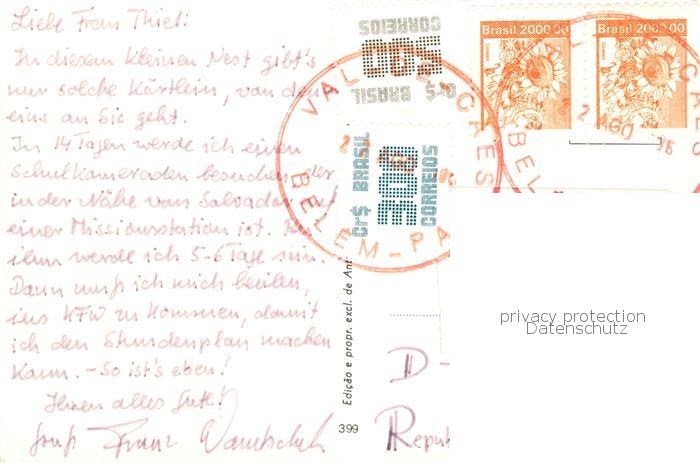 Liebe Frau Thiel!
In diesem kleinen Nest gibt's
nur solche Kärtlein, von denen
eins an Sie geht.
In 14 Tagen werde ich einen
Schulkameraden besuchen, der
in der Nähe von Salvador auf
einer Missionsstation ist. Bei
ihm werde ich 5-6 Tage sein.
Dann muß ich mich beeilen,
ins KFW zu kommen, damit
ich den Stundenplan machen
kann. - So ist's eben!
Ihnen alles Gute!
Gruß Franz
Edição e propr. excl. de Ant.
399
CORREIOS
Cr$ BRASIL
Cr$ BRASIL
300
CORREIOS
Brasil 2000,00
Brasil 2000,00
VAL-DE-CÃES
BELEM-PA
2 AGO
D-
Repub
privacy protection
Datenschutz